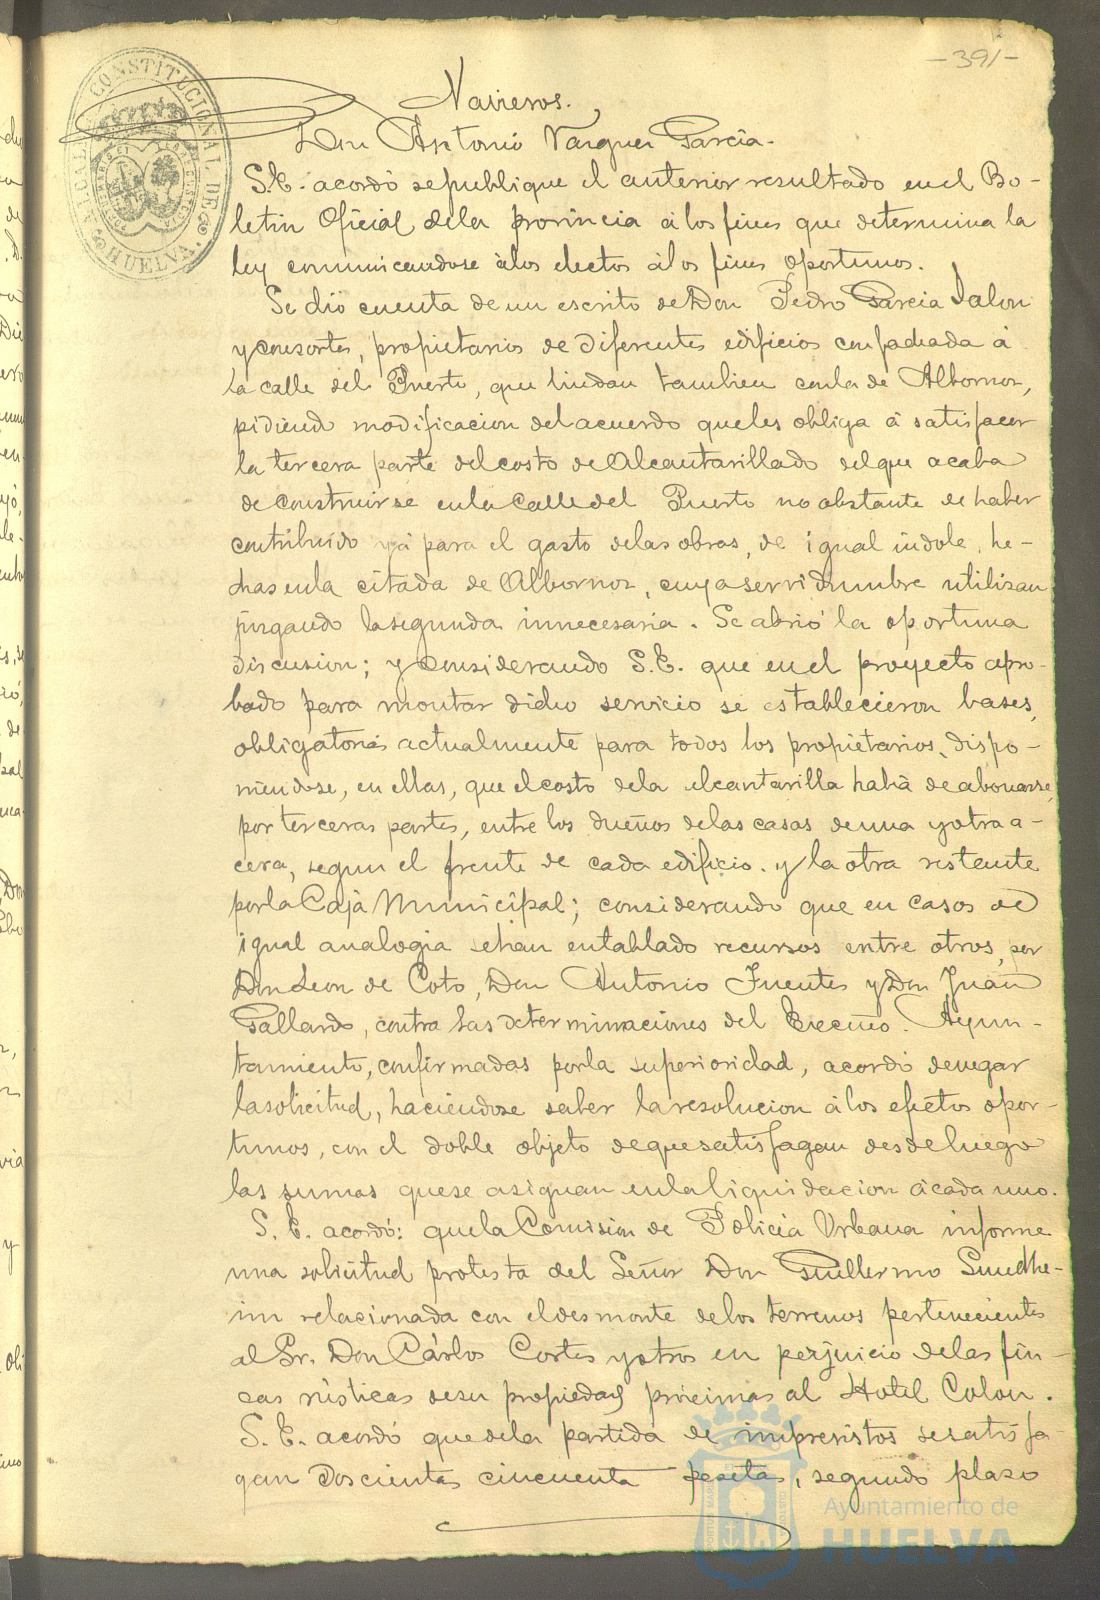 -391-
ALCALDIA CONSTITUCIONAL DE HUELVA
Navieros.
Don Antonio Vazquez Garcia.
S.E. acordó se publique el anterior resultado en el Bo-
letin Oficial dela provincia á los fines que determina la
ley comunicandose álos electos álos fines oportunos.
Se dió cuenta de un escrito de Don Pedro Garcia Jalon
y consortes, propietarios de diferentes edificios con fachada á
la calle del Puerto, que lindan tambien conla de Albornoz,
pidiendo modificacion del acuerdo queles obliga á satisfacer
la tercera parte del costo de Alcantarillado del que acaba
de construirse enla Calle del Puerto no obstante de haber
contribuido yá para el gasto delas obras, de igual indole, he-
chas enla citada de Albornoz, cuya servidumbre utilizan
juzgando la segunda innecesaria. Se abrió la oportuna
discusion; y considerando S.E. que en el proyecto apro-
bado para montar dicho servicio se establecieron bases,
obligatorias actualmente para todos los propietarios, dispo-
niendose, en ellas, que el costo dela alcantarilla habiá de abonarse,
por terceras partes, entre los dueños delas casas de una y otra a-
cera, segun el frente de cada edificio. y la otra restante
porla Caja Municipal; considerando que en casos de
igual analogia se han entablado recursos entre otros, por
Don Leon de Coto, Don Antonio Fuentes y Don Juan
Gallardo, contra las determinaciones del Excmo. Ayun-
tamiento, confirmadas porla superioridad, acordó denegar
la solicitud, haciendose saber la resolucion álos efectos opor-
tunos, con el doble objeto de que satisfagan desde luego
las sumas que se asignan enla liquidacion á cada uno.
S. E. acordó: que la Comision de Policia Urbana informe
una solicitud protesta del Señor Don Guillermo Sundhe-
im relacionada con el desmonte delos terrenos pertenecientes
al Sr. Don Cárlos Cortes y otros en perjuicio delas fin-
cas rústicas desu propiedad próximas al Hotel Colon.
S. E. acordó que dela partida de imprevistos se satisfa-
gan doscientas cincuenta pesetas, segundo plazo
Ayuntamiento de
HUELVA